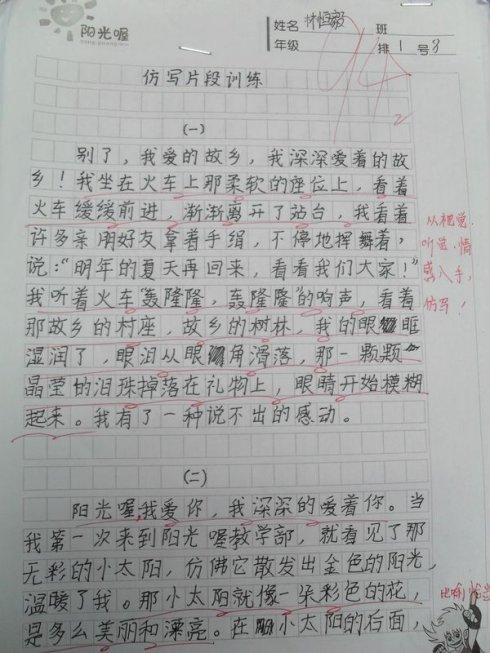 阳光喔
姓名 林恒毅 班
年级 排 1 号 3
仿写片段训练
(一)
别了，我爱的故乡，我深深爱着的故
乡！我坐在火车上那柔软的座位上，看着
火车缓缓前进，渐渐离开了站台，我看着
许多亲朋好友拿着手绢，不停地挥舞着，
说：“明年的夏天再回来，看看我们大家！”
我听着火车“轰隆隆，轰隆隆”的响声，看着
那故乡的村座，故乡的树林，我的眼眶
湿润了，眼泪从眼角滑落，那一颗颗
晶莹的泪珠掉落在礼物上，眼睛开始模糊
起来。我有了一种说不出的感动。
从视觉、
听觉、情
感入手，
仿写！
(二)
阳光喔，我爱你，我深深的爱着你。当
我第一次来到阳光喔教学部，就看见了那
无彩的小太阳，仿佛它散发出金色的阳光，
温暖了我。那小太阳就像一朵彩色的花，
是多么美丽和漂亮。在小太阳的右面，
比喻